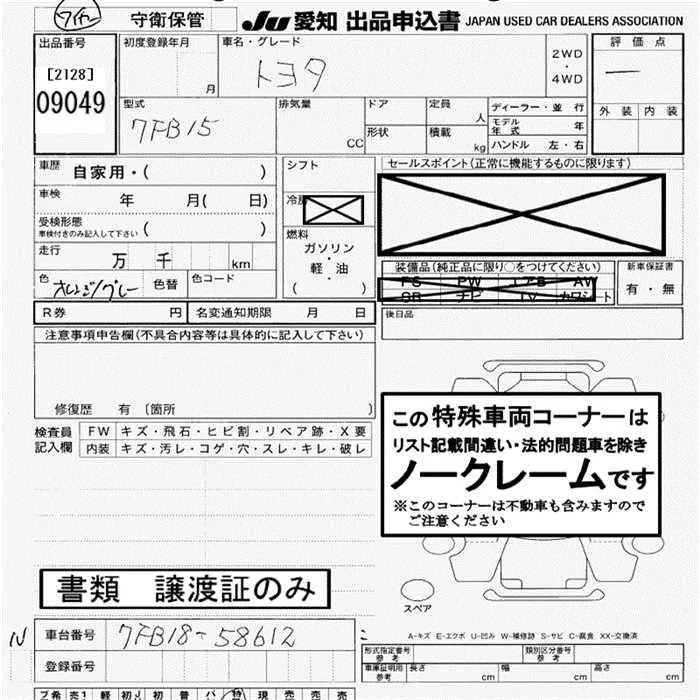 ワイパー 守衛保管 JU 愛知 出品申込書 JAPAN USED CAR DEALERS ASSOCIATION
出品番号 初度登録年月 車名・グレード 評価点
[2128] 月 トヨタ 2WD・4WD ー
09049 外装 内装
型式 排気量 ドア 定員 ディーラー・並行
7FB15 CC 人 モデル年式 年
形状 積載 kg ハンドル 左・右
車歴 自家用・( ) シフト セールスポイント(正常に機能するものに限ります)
車検 年 月( 日) 冷房
受検形態 ( )
車検付きのみ記入して下さい
燃料
走行 万 千 km ガソリン・軽・油
( )
装備品(純正品に限り○をつけてください) 新車保証書
色 オレンジ/グレー 色替 色コード PS PW エアB AW 有・無
SR ナビ TV カワシート
R券 円 名変通知期限 月 日 後日品
注意事項申告欄(不具合内容等は具体的に記入して下さい)
修復歴 有 〔箇所 〕
検査員記入欄 FW キズ・飛石・ヒビ割・リペア跡・X要
内装 キズ・汚レ・コゲ・穴・スレ・キレ・破レ
この特殊車両コーナーは
リスト記載間違い・法的問題車を除き
ノークレームです
※このコーナーは不動車も含みますので
ご注意ください
書類 譲渡証のみ
スペア
N 車台番号 7FB18-58612
A-キズ E-エクボ U-凹み W-補修跡 S-サビ C-腐食 XX-交換済
登録番号
形式指定番号 参考 類別区分番号 参考
車庫証明用 参考 長さ cm 幅 cm 高さ cm